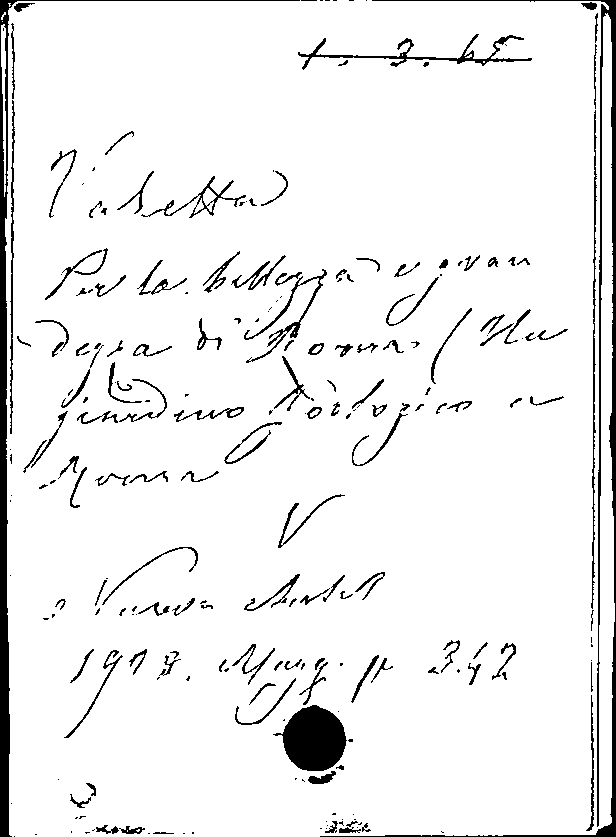 1. 3. 65
Valetta
Per la bellezza e gran
dezza di Roma (Un
giardino Zoologico a
Roma
V
Nuova Antol
p 342